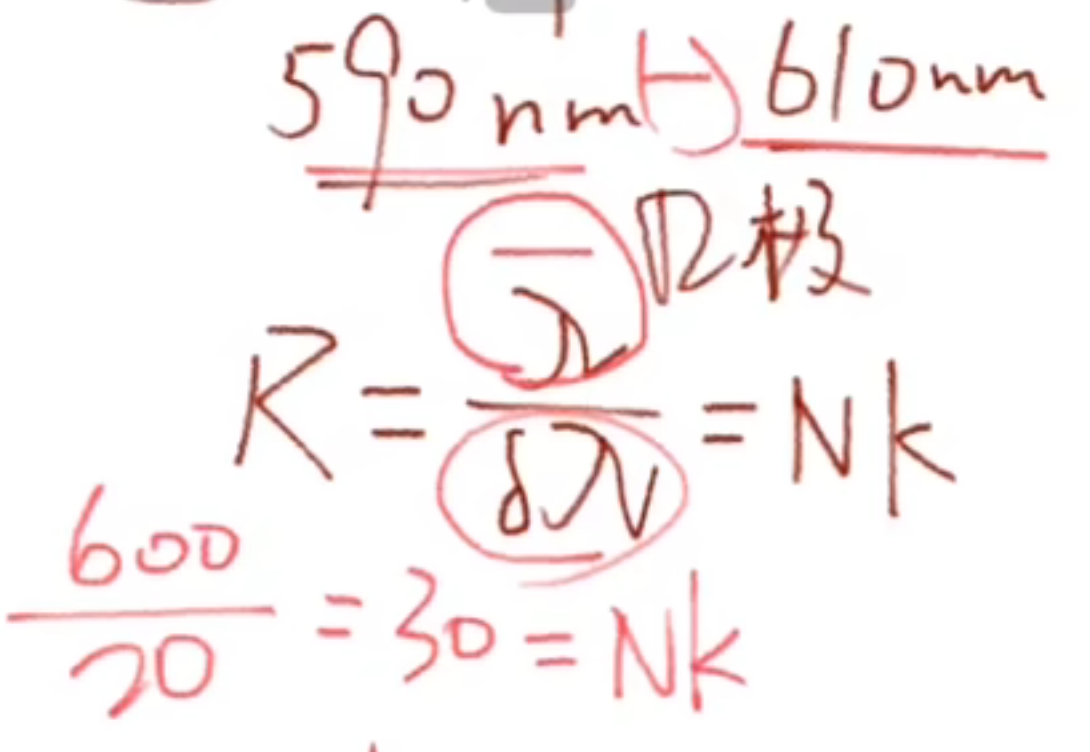 590 nm (-) 610nm
R = λ̄/δλ = Nk
600/20 = 30 = Nk